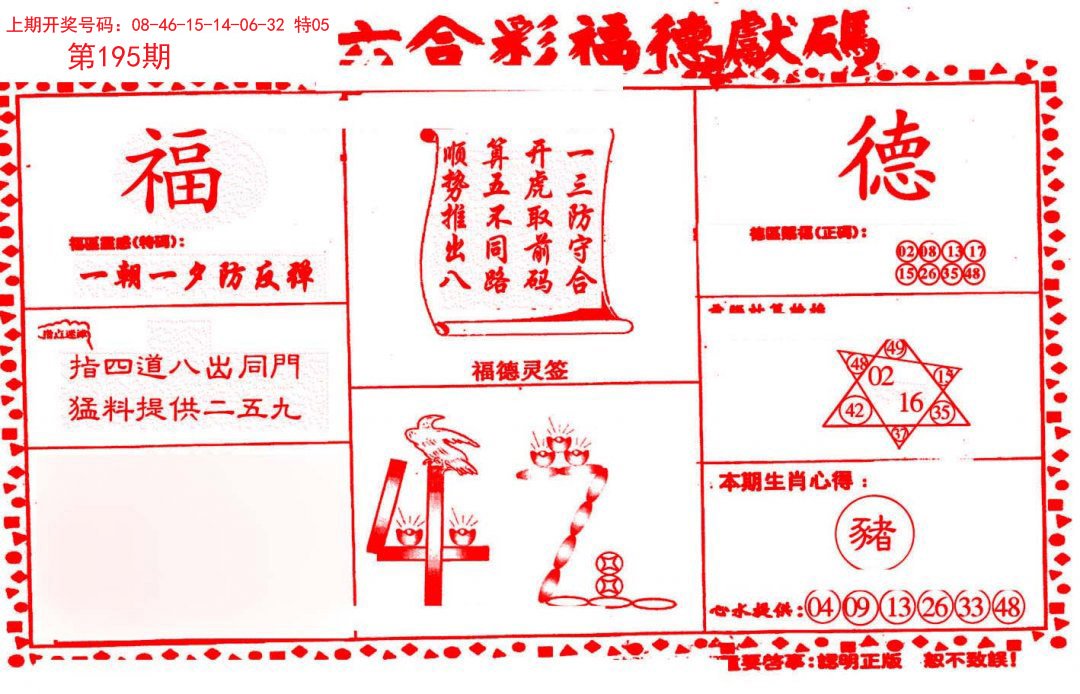 上期开奖号码：08-46-15-14-06-32 特05
第195期
六合彩福德獻碼
福
福區靈感(特碼)：
一朝一夕防反彈
指点迷津
指四道八出同門
猛料提供二五九
一三防守合
开虎取前码
算五不同路
顺势推出八
福德灵签
德
德區賜福(正碼)：
02 08 13 17
15 26 35 48
49
48 02 15
42 16 35
37
本期生肖心得：
豬
心水提供：04 09 13 26 33 48
重要答事：認明正版 恕不致誤！